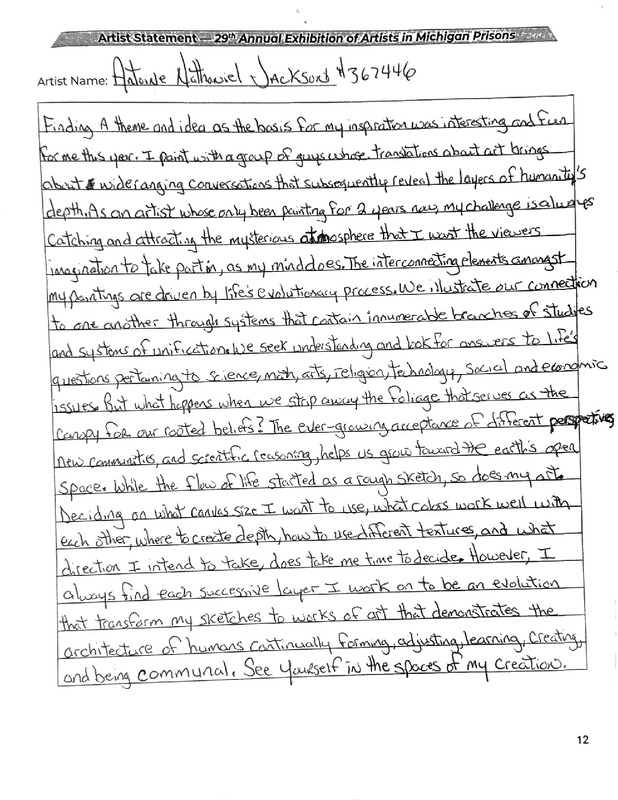 Artist Statement — 29th Annual Exhibition of Artists in Michigan Prisons
Artist Name: Antoine Nathaniel Jackson #367446
Finding A theme and idea as the basis for my inspiration was interesting and fun
for me this year. I paint with a group of guys whose translations about art brings
about wide ranging conversations that subsequently reveal the layers of humanity's
depth. As an artist whose only been painting for 2 years now, my challenge is always
catching and attracting the mysterious atmosphere that I want the viewers
imagination to take part in, as my mind does. The interconnecting elements amongst
my paintings are driven by life's evolutionary process. We illustrate our connection
to one another through systems that contain innumerable branches of studies
and systems of unification. We seek understanding and look for answers to life's
questions pertaining to science, math, arts, religion, technology, social and economic
issues. But what happens when we strip away the foliage that serves as the
canopy for our rooted beliefs? The ever-growing acceptance of different perspectives
new communities, and scientific reasoning, helps us grow toward the earth's open
space. While the flow of life started as a rough sketch, so does my art.
Deciding on what canvas size I want to use, what colors work well with
each other, where to create depth, how to use different textures, and what
direction I intend to take, does take me time to decide. However, I
always find each successive layer I work on to be an evolution
that transform my sketches to works of art that demonstrates the
architecture of humans continually forming, adjusting, learning, creating,
and being communal. See Yourself in the spaces of my creation.
12